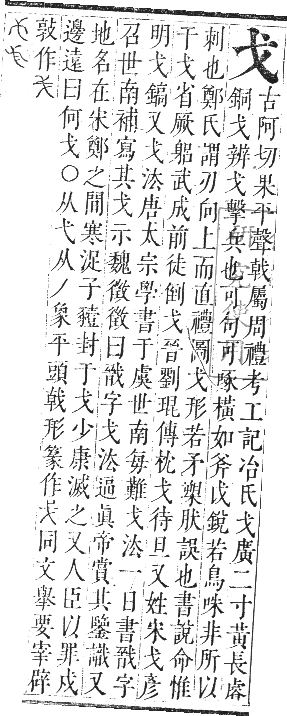 戈
古阿切果平聲戟屬周禮考工記冶氏戈廣二寸黃長睿
銅戈辨戈擊兵也可句可啄橫如斧戉銳若鳥咮非所以
刺也鄭氏謂刃向上而直禮圖戈形若矛槊狀誤也書說命惟
干戈省厥躬武成前徒倒戈晉劉琨傳枕戈待旦又姓宋戈彥
明戈鎬又戈法唐太宗學書于虞世南每難戈法一日書戩字
召世南補寫其戈示魏徵徵曰戩字戈法逼眞帝賞其鑒識又
地名在宋鄭之閒寒浞子豷封于戈少康滅之又人臣以罪戍
邊遠曰何戈○从弋从丿象平頭戟形篆作戈同文舉要宰辟
敦作戈